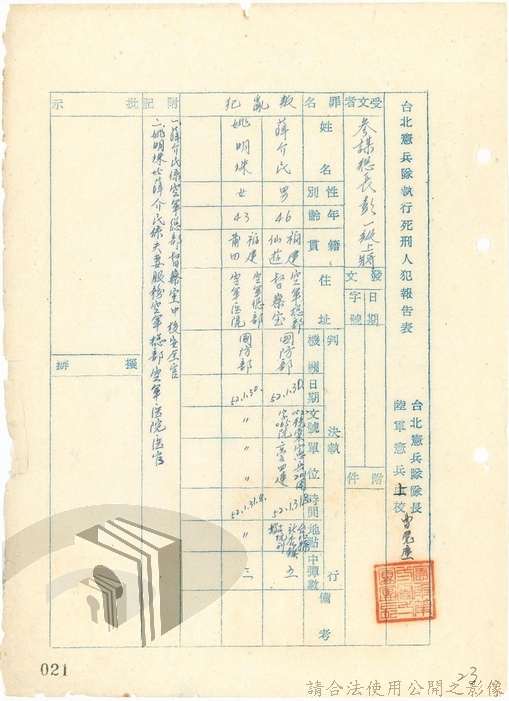 台北憲兵隊執行死刑人犯報告表
台北憲兵隊隊長
陸軍憲兵上校
受文者
參謀總長彭一級上將
發文
日期
字號
附件
罪名
叛亂犯
姓名
性別
年齡
籍貫
住址
判決
機關
日期
文號
執行
單位
時間
地點
中彈數
備考
薛介民
男
46
福建仙遊
空軍總部督察室
國防部
52.1.30.
五
姚明珠
女
43
福建莆田
空軍總部空軍醫院
國防部
52.1.30.
〃
〃
〃
三
附記
一、薛介民係空軍總部督察室中校
二、姚明珠與薛介民係夫妻服務空軍總部空軍医院医官
批示
擬辦
021
23
請合法使用公開之影像